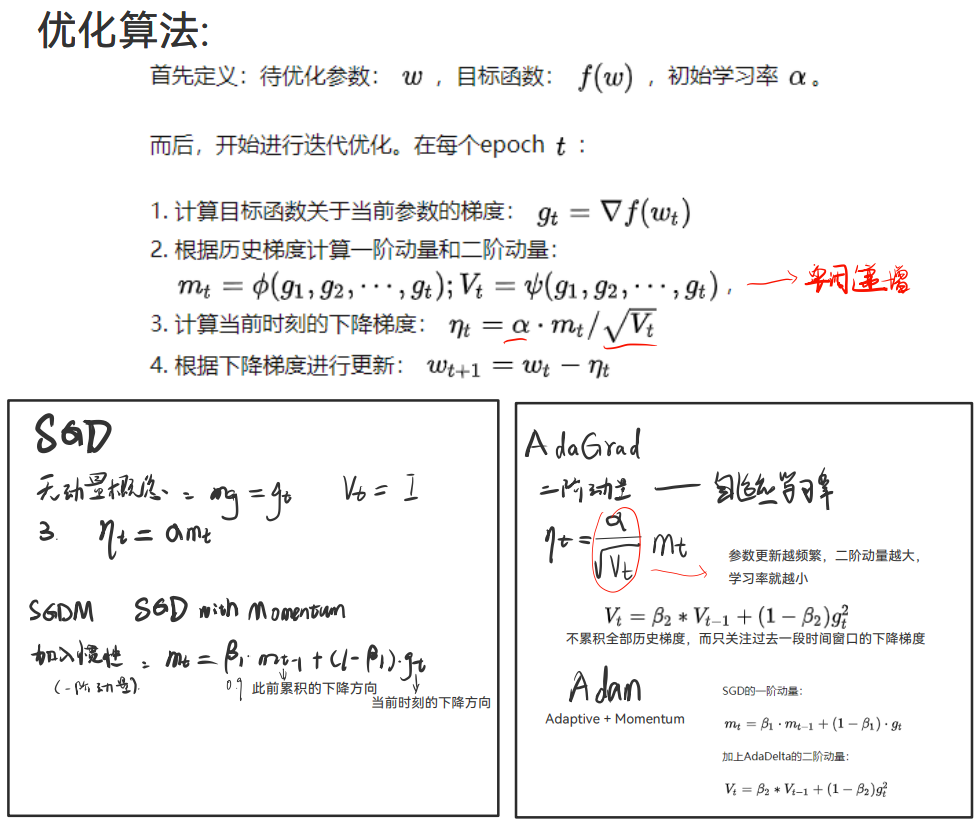 优化算法:
首先定义：待优化参数： w ，目标函数： f(w) ，初始学习率 α 。
而后，开始进行迭代优化。在每个epoch t ：
1. 计算目标函数关于当前参数的梯度： g_t = ∇f(w_t)
2. 根据历史梯度计算一阶动量和二阶动量：
m_t = ϕ(g_1, g_2, ⋯, g_t); V_t = ψ(g_1, g_2, ⋯, g_t) , → 单调递增
3. 计算当前时刻的下降梯度： η_t = α · m_t / √V_t
4. 根据下降梯度进行更新： w_{t+1} = w_t − η_t
SGD
无动量概念 = m_g = g_t V_t = I
3. η_t = α m_t
SGDM SGD with Momentum
加入惯性 = m_t = β_1 · m_{t-1} + (1-β_1) · g_t
(一阶动量)
0.9 此前累积的下降方向
当前时刻的下降方向
AdaGrad
二阶动量 — 自适应学习率
η_t = α / √V_t m_t →
参数更新越频繁，二阶动量越大，
学习率就越小
V_t = β_2 * V_{t−1} + (1 − β_2)g_t^2
不累积全部历史梯度，而只关注过去一段时间窗口的下降梯度
Adam
Adaptive + Momentum
SGD的一阶动量：
m_t = β_1 · m_{t−1} + (1 − β_1) · g_t
加上AdaDelta的二阶动量：
V_t = β_2 * V_{t−1} + (1 − β_2)g_t^2